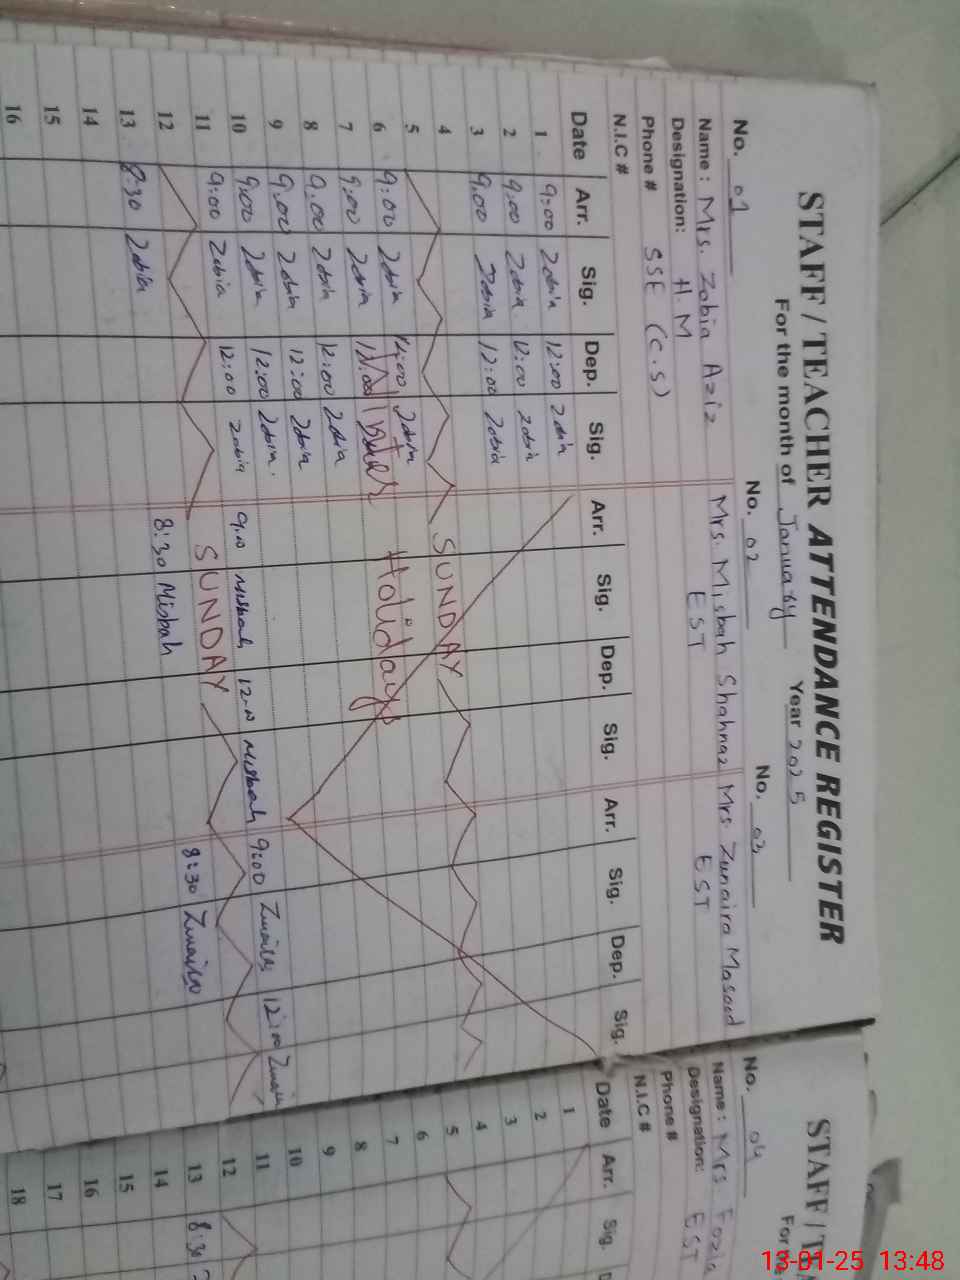 STAFF / TEACHER ATTENDANCE REGISTER
For the month of January Year 2025
No. 01 No. 02 No. 03
Name : Mrs. Zobia Aziz Mrs. Misbah Shahnaz Mrs. Zunaira Masood
Designation: H.M EST EST
Phone # SSE (C.S)
N.I.C #
Date Arr. Sig. Dep. Sig. Arr. Sig. Dep. Sig. Arr. Sig. Dep. Sig.
1 9:00 Zobia 12:00 Zobia
2 9:00 Zobia 12:00 Zobia
3 9:00 Zobia 12:00 Zobia
4
5 SUNDAY
6 9:00 Zobia 12:00 Zobia
7 9:00 Zobia 12:00 Holidays
8 9:00 Zobia 12:00 Zobia
9 9:00 Zobia 12:00 Zobia
10 9:00 Zobia 12:00 Zobia
11 9:00 Zobia 12:00 Zobia 9:00 Misbah 12:00 Misbah 9:00 Zunaira 12:00 Zunaira
12 SUNDAY
13 8:30 Zobia 8:30 Misbah 8:30 Zunaira
14
15
16
STAFF / T
For
No. 04
Name : Mrs Fozia
Designation: EST
Phone #
N.I.C #
Date Arr. Sig.
1
2
3
4
5
6
7
8
9
10
11
12
13 8:30
14
15
16
17
18
13-01-25 13:48